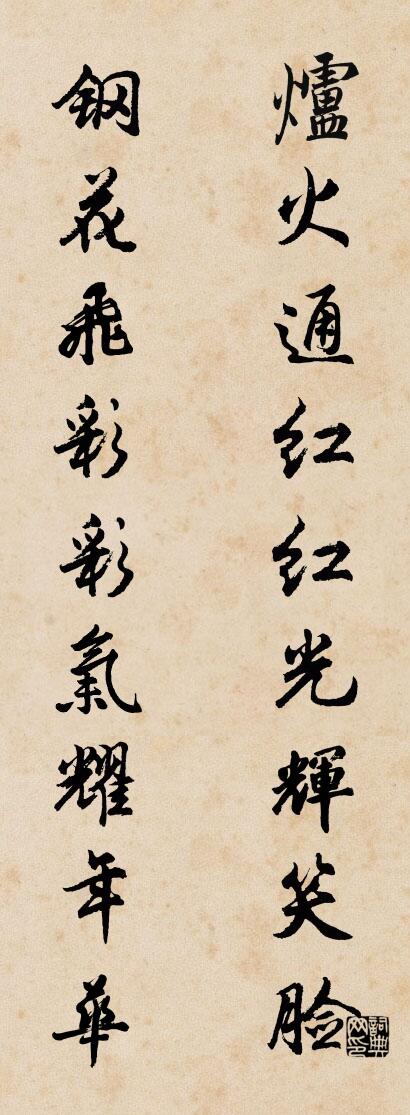 爐火通红红光輝笑脸
钢花飛彩彩氣耀年華
詞典网印